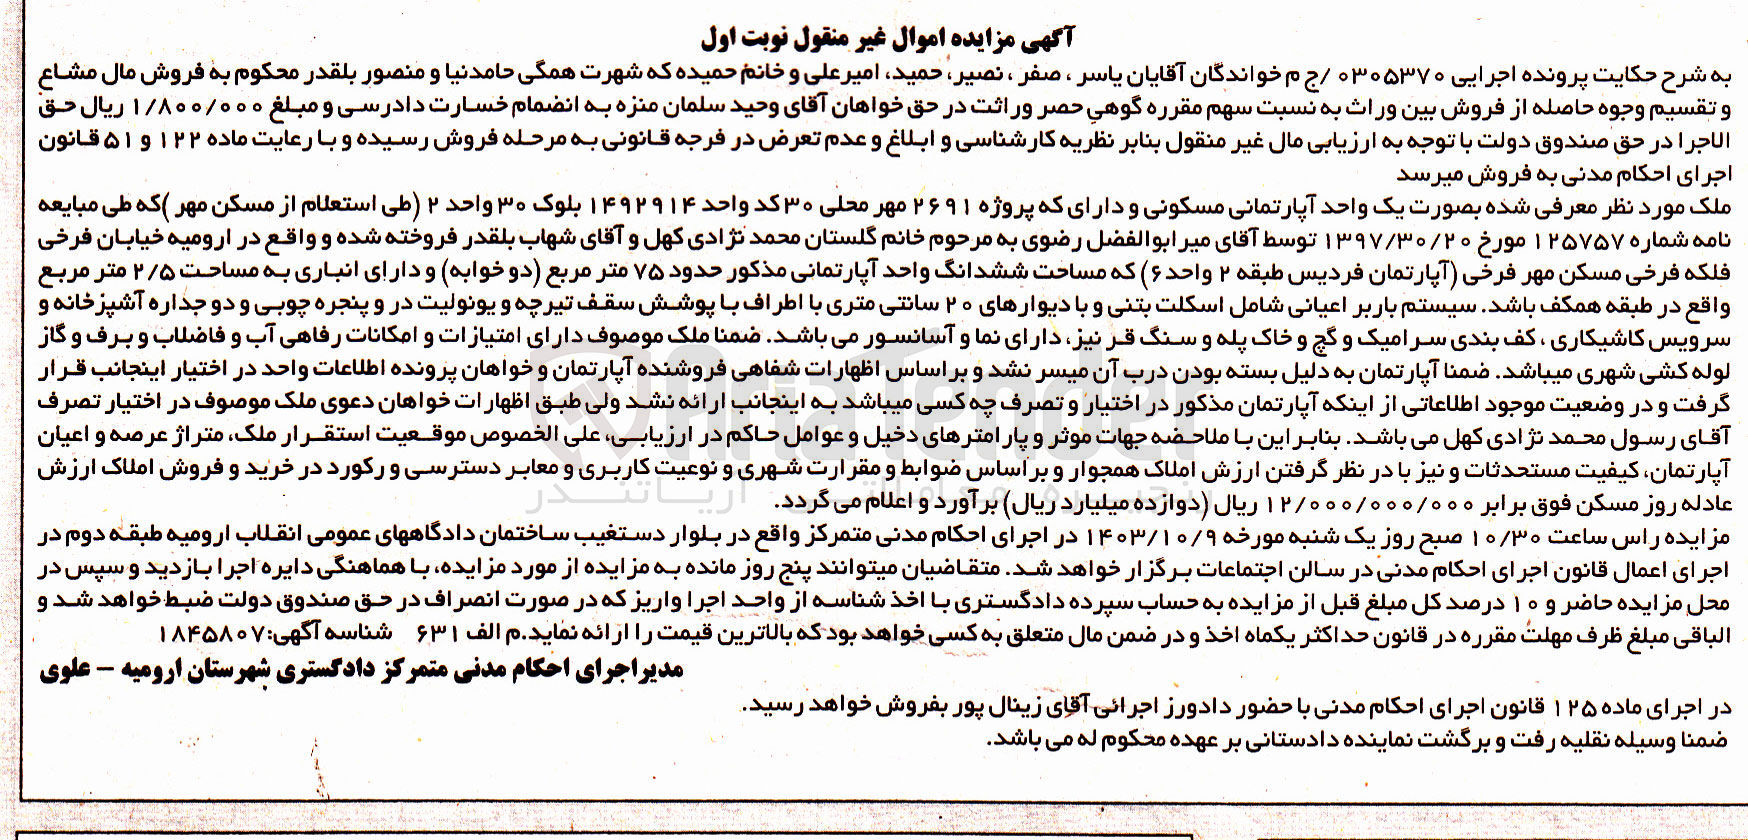 آگهی مزایده اموال غیر منقول نوبت اول
به شرح حکایت پرونده اجرایی ۰۳۰۵۳۷۰ /ج م خواندگان آقایان یاسر ، صفر ، نصیر، حمید، امیرعلی و خانم حمیده که شهرت همگی حامدنیا و منصور بلقدر محکوم به فروش مال مشاع
و تقسیم وجوه حاصله از فروش بین وراث به نسبت سهم مقرره گوهی حصر وراثت در حق خواهان آقای وحید سلمان منزه به انضمام خسارت دادرسی و مبلغ ۱/۸۰۰/۰۰۰ ریال حق
الاجرا در حق صندوق دولت با توجه به ارزیابی مال غیر منقول بنابر نظریه کارشناسی و ابلاغ و عدم تعرض در فرجه قانونی به مرحله فروش رسیده و با رعایت ماده ۱۲۲ و ۵۱ قانون
اجرای احکام مدنی به فروش میرسد
ملک مورد نظر معرفی شده بصورت یک واحد آپارتمانی مسکونی و دارای که پروژه ۲۶۹۱ مهر محلی ۳۰ کد واحد ۱۴۹۲۹۱۴ بلوک ۳۰ واحد ۲ (طی استعلام از مسکن مهر )که طی مبایعه
نامه شماره ۱۲۵۷۵۷ مورخ ۱۳۹۷/۳۰/۲۰ توسط آقای میر ابوالفضل رضوی به مرحوم خانم گلستان محمد نژادی کهل و آقای شهاب بلقدر فروخته شده و واقع در ارومیه خیابان فرخی
فلکه فرخی مسکن مهر فرخی (آپارتمان فردیس طبقه ۲ واحد۶) که مساحت ششدانگ واحد آپارتمانی مذکور حدود ۷۵ متر مربع (دو خوابه) و دارای انباری به مساحت ۲/۵ متر مربع
واقع در طبقه همکف باشد. سیستم باربر اعیانی شامل اسکلت بتنی و با دیوارهای ۲۰ سانتی متری با اطراف با پوشش سقف تیرچه و یونولیت در و پنجره چوبی و دو جداره آشپزخانه و
سرویس کاشیکاری ، کف بندی سرامیک و گچ و خاک پله و سنگ قر نیز، دارای نما و آسانسور می باشد. ضمنا ملک موصوف دارای امتیازات و امکانات رفاهی آب و فاضلاب و برف و گاز
لوله کشی شهری میباشد. ضمنا آپارتمان به دلیل بسته بودن درب آن میسر نشد و بر اساس اظهارات شفاهی فروشنده آپارتمان و خواهان پرونده اطلاعات واحد در اختیار اینجانب قرار
گرفت و در وضعیت موجود اطلاعاتی از اینکه آپارتمان مذکور در اختیار و تصرف چه کسی میباشد به اینجانب ارائه نشد ولی طبق اظهارات خواهان دعوی ملک موصوف در اختیار تصرف
آقای رسول محمد نژادی کهل می باشد. بنابر این با ملاحضه جهات موثر و پارامترهای دخیل و عوامل حاکم در ارزیابی، علی الخصوص موقعیت استقرار ملک، متراژ عرصه و اعیان
آپارتمان، کیفیت مستحدثات و نیز با در نظر گرفتن ارزش املاک همجوار و بر اساس ضوابط و مقرارت شهری و نوعیت کاربری و معابر دسترسی و رکورد در خرید و فروش املاک ارزش
عادله روز مسکن فوق برابر ۱۲/۰۰۰/۰۰۰/۰۰۰ ریال (دوازده میلیارد ریال) برآورد و اعلام می گردد.
مزایده راس ساعت ۱۰/۳۰ صبح روز یک شنبه مورخه ۱۴۰۳/۱۰/۹ در اجرای احکام مدنی متمرکز واقع در بلوار دستغیب ساختمان دادگاههای عمومی انقلاب ارومیه طبقه دوم در
اجرای اعمال قانون اجرای احکام مدنی در سالن اجتماعات برگزار خواهد شد. متقاضیان میتوانند پنج روز مانده به مزایده از مورد مزایده، با هماهنگی دایره اجرا بازدید و سپس در
محل مزایده حاضر و ۱۰ درصد کل مبلغ قبل از مزایده به حساب سپرده دادگستری با اخذ شناسه از واحد اجرا واریز که در صورت انصراف در حق صندوق دولت ضبط خواهد شد و
الباقی مبلغ ظرف مهلت مقرره در قانون حداکثر یکماه اخذ و در ضمن مال متعلق به کسی خواهد بود که بالاترین قیمت را ارائه نماید.م الف ۶۳۱ شناسه آگهی:۱۸۴۵۸۰۷
مدیراجرای احکام مدنی متمرکز دادگستری شهرستان ارومیه – علوی
در اجرای ماده ۱۲۵ قانون اجرای احکام مدنی با حضور دادورز اجرائی آقای زینال پور بفروش خواهد رسید.
ضمنا وسیله نقلیه رفت و برگشت نماینده دادستانی بر عهده محکوم له می باشد.
AriaTender